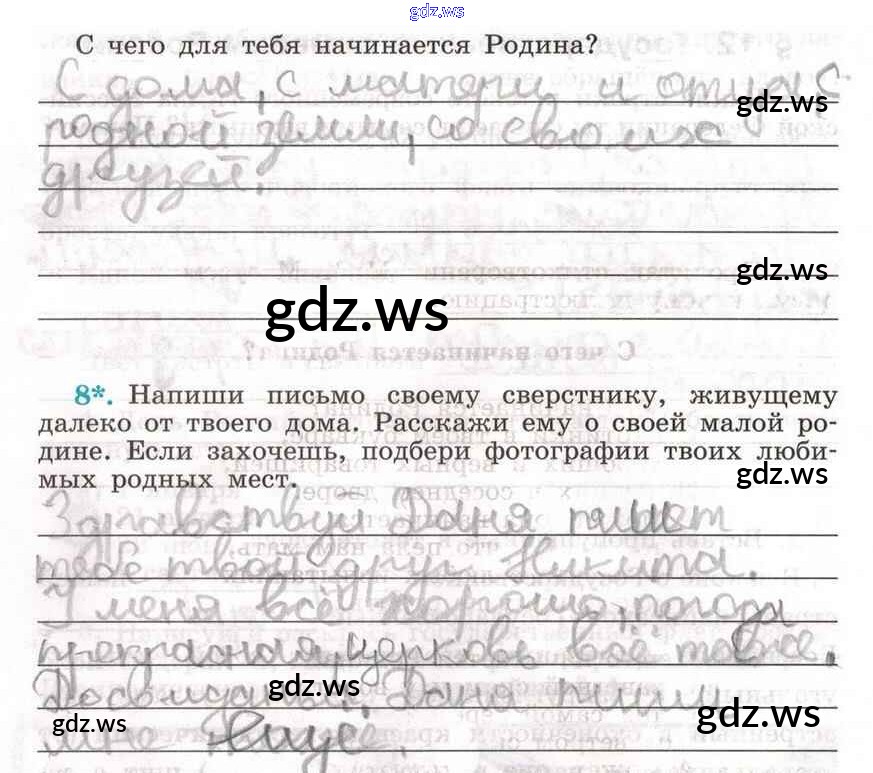 gdz.ws
С чего для тебя начинается Родина?
С дома, с матери и отца, с
gdz.ws
родной земли, со своих
друзей.
gdz.ws
gdz.ws
С чего начинается Родина?
8*. Напиши письмо своему сверстнику, живущему
далеко от твоего дома. Расскажи ему о своей малой ро-
дине. Если захочешь, подбери фотографии твоих люби-
gdz.ws
мых родных мест.
Здравствуй Даня пишет
тебе твой друг Никита.
У меня всё хорошо, погода
прекрасная, церковь всё тоже.
До свидания. Даня пиши
gdz.ws
gdz.ws
gdz.ws
мне ещё.